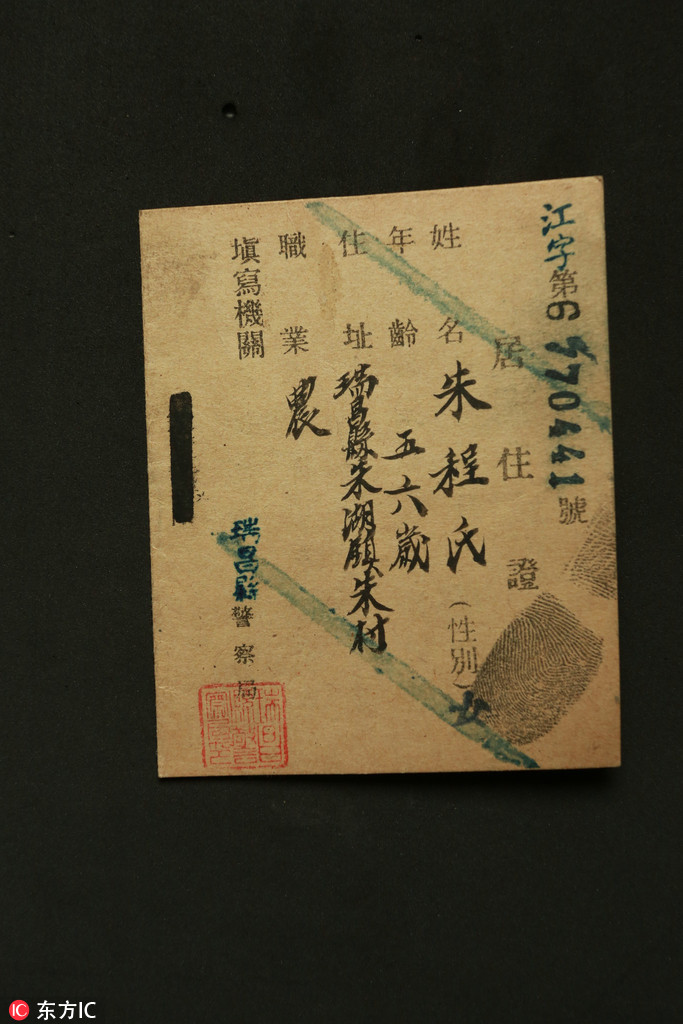 江字第6770441號
居住證
姓名 朱程氏 (性別) 女
年齡 五六歲
住址 瑞昌縣朱湖鎮朱村
職業 農
填寫機關 瑞昌縣警察局
IC 东方IC